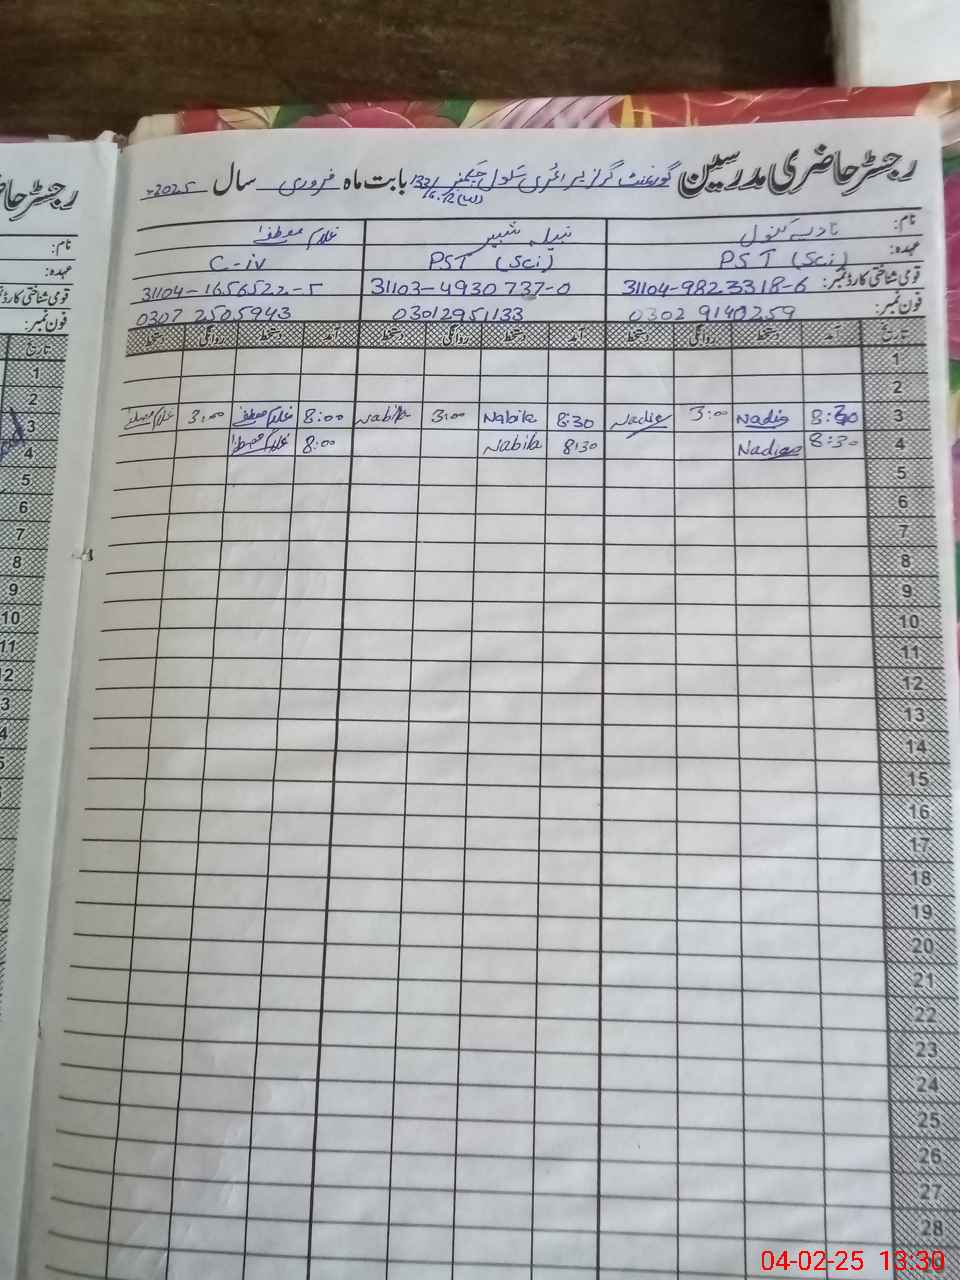 رجسٹر حاضری مدرسین گورنمنٹ گرلز پرائمری سکول بابت ماہ فروری سال 2025
نام: نادیہ کنول نبیلہ شبیر غلام مصطفیٰ
عہدہ: PST (Sci) PST (Sci) C-iv
قومی شناختی کارڈ نمبر: 31104-9823318-6 31103-4930737-0 31104-1656522-5
فون نمبر: 0302 9140259 03012951133 0307 2505943
تاریخ آمد دستخط روانگی دستخط آمد دستخط روانگی دستخط آمد دستخط روانگی دستخط
1
2
3 8:30 Nadia 3:00 Nadia 8:30 Nabila 3:00 Nabila 8:00 غلام مصطفیٰ 3:00 غلام مصطفیٰ
4 8:30 Nadia 8:30 Nabila 8:00 غلام مصطفیٰ
5
6
7
8
9
10
11
12
13
14
15
16
17
18
19
20
21
22
23
24
25
26
27
28
رجسٹر حا
نام:
عہدہ:
قومی شناختی کارڈ
فون نمبر:
تاریخ
1
2
3
4
5
6
7
8
9
10
11
04-02-25 13:30